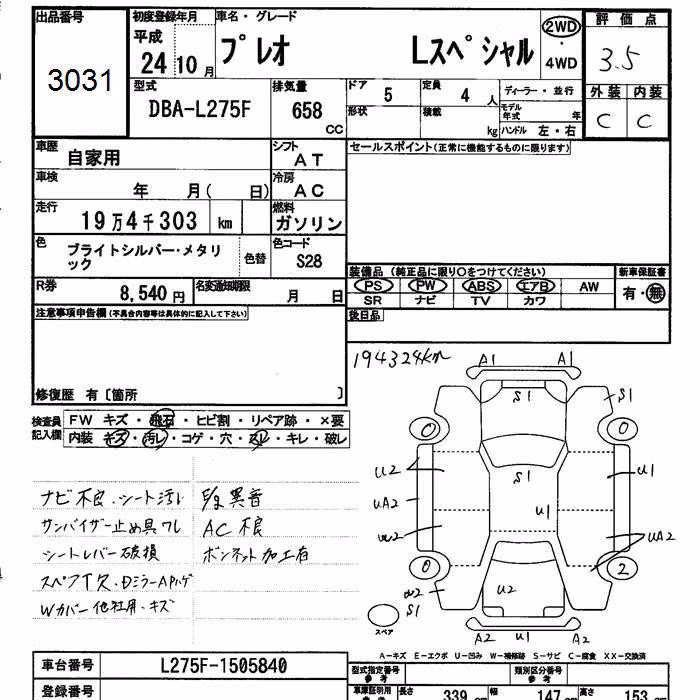 出品番号 初度登録年月 車名・グレード 2WD 評価点
3031 平成 24 10月 プレオ Lスペシャル ・ 4WD 3.5
型式 排気量 ドア 定員 ディーラー・並行 外装 内装
DBA-L275F 658 cc 5 4人 形状 積載 kg モデル年式 年 ハンドル 左・右 C C
車歴 自家用 シフト AT セールスポイント(正常に機能するものに限ります)
車検 年 月( 日) 冷房 AC
走行 19万4千303 km 燃料 ガソリン
色 ブライトシルバー・メタリック 色替 色コード S28
装備品 (純正品に限り○をつけてください) 新車保証書
R券 8,540円 名変通知期限 月 日 PS PW ABS エアB AW 有・無
SR ナビ TV カワ
注意事項申告欄(不具合内容等は具体的に記入して下さい) 後日品
194324km
A1 A1
S1 S1
修復歴 有〔箇所 〕
検査員記入欄 FW キズ・飛石・ヒビ割・リペア跡・×要
内装 キズ・汚レ・コゲ・穴・スレ・キレ・破レ
0 0
U2 S1 U1
UA2 U1
W2 UA2
0 2
W2 U2
S1
スペア A2 U1 A2
ナビ不良・シート汚レ 異音
サンバイザー止め具ワレ AC不良
シートレバー破損 ボンネット加工有
スペアT欠・DミラーAPハゲ
Wカバー他社用・キズ
A−キズ E−エクボ U−凹み W−補修跡 S−サビ C−腐食 XX−交換済
車台番号 L275F-1505840 型式指定番号 参考 類別区分番号 参考
登録番号 車庫証明用 参考 長さ 339 cm 幅 147 cm 高さ 153 cm